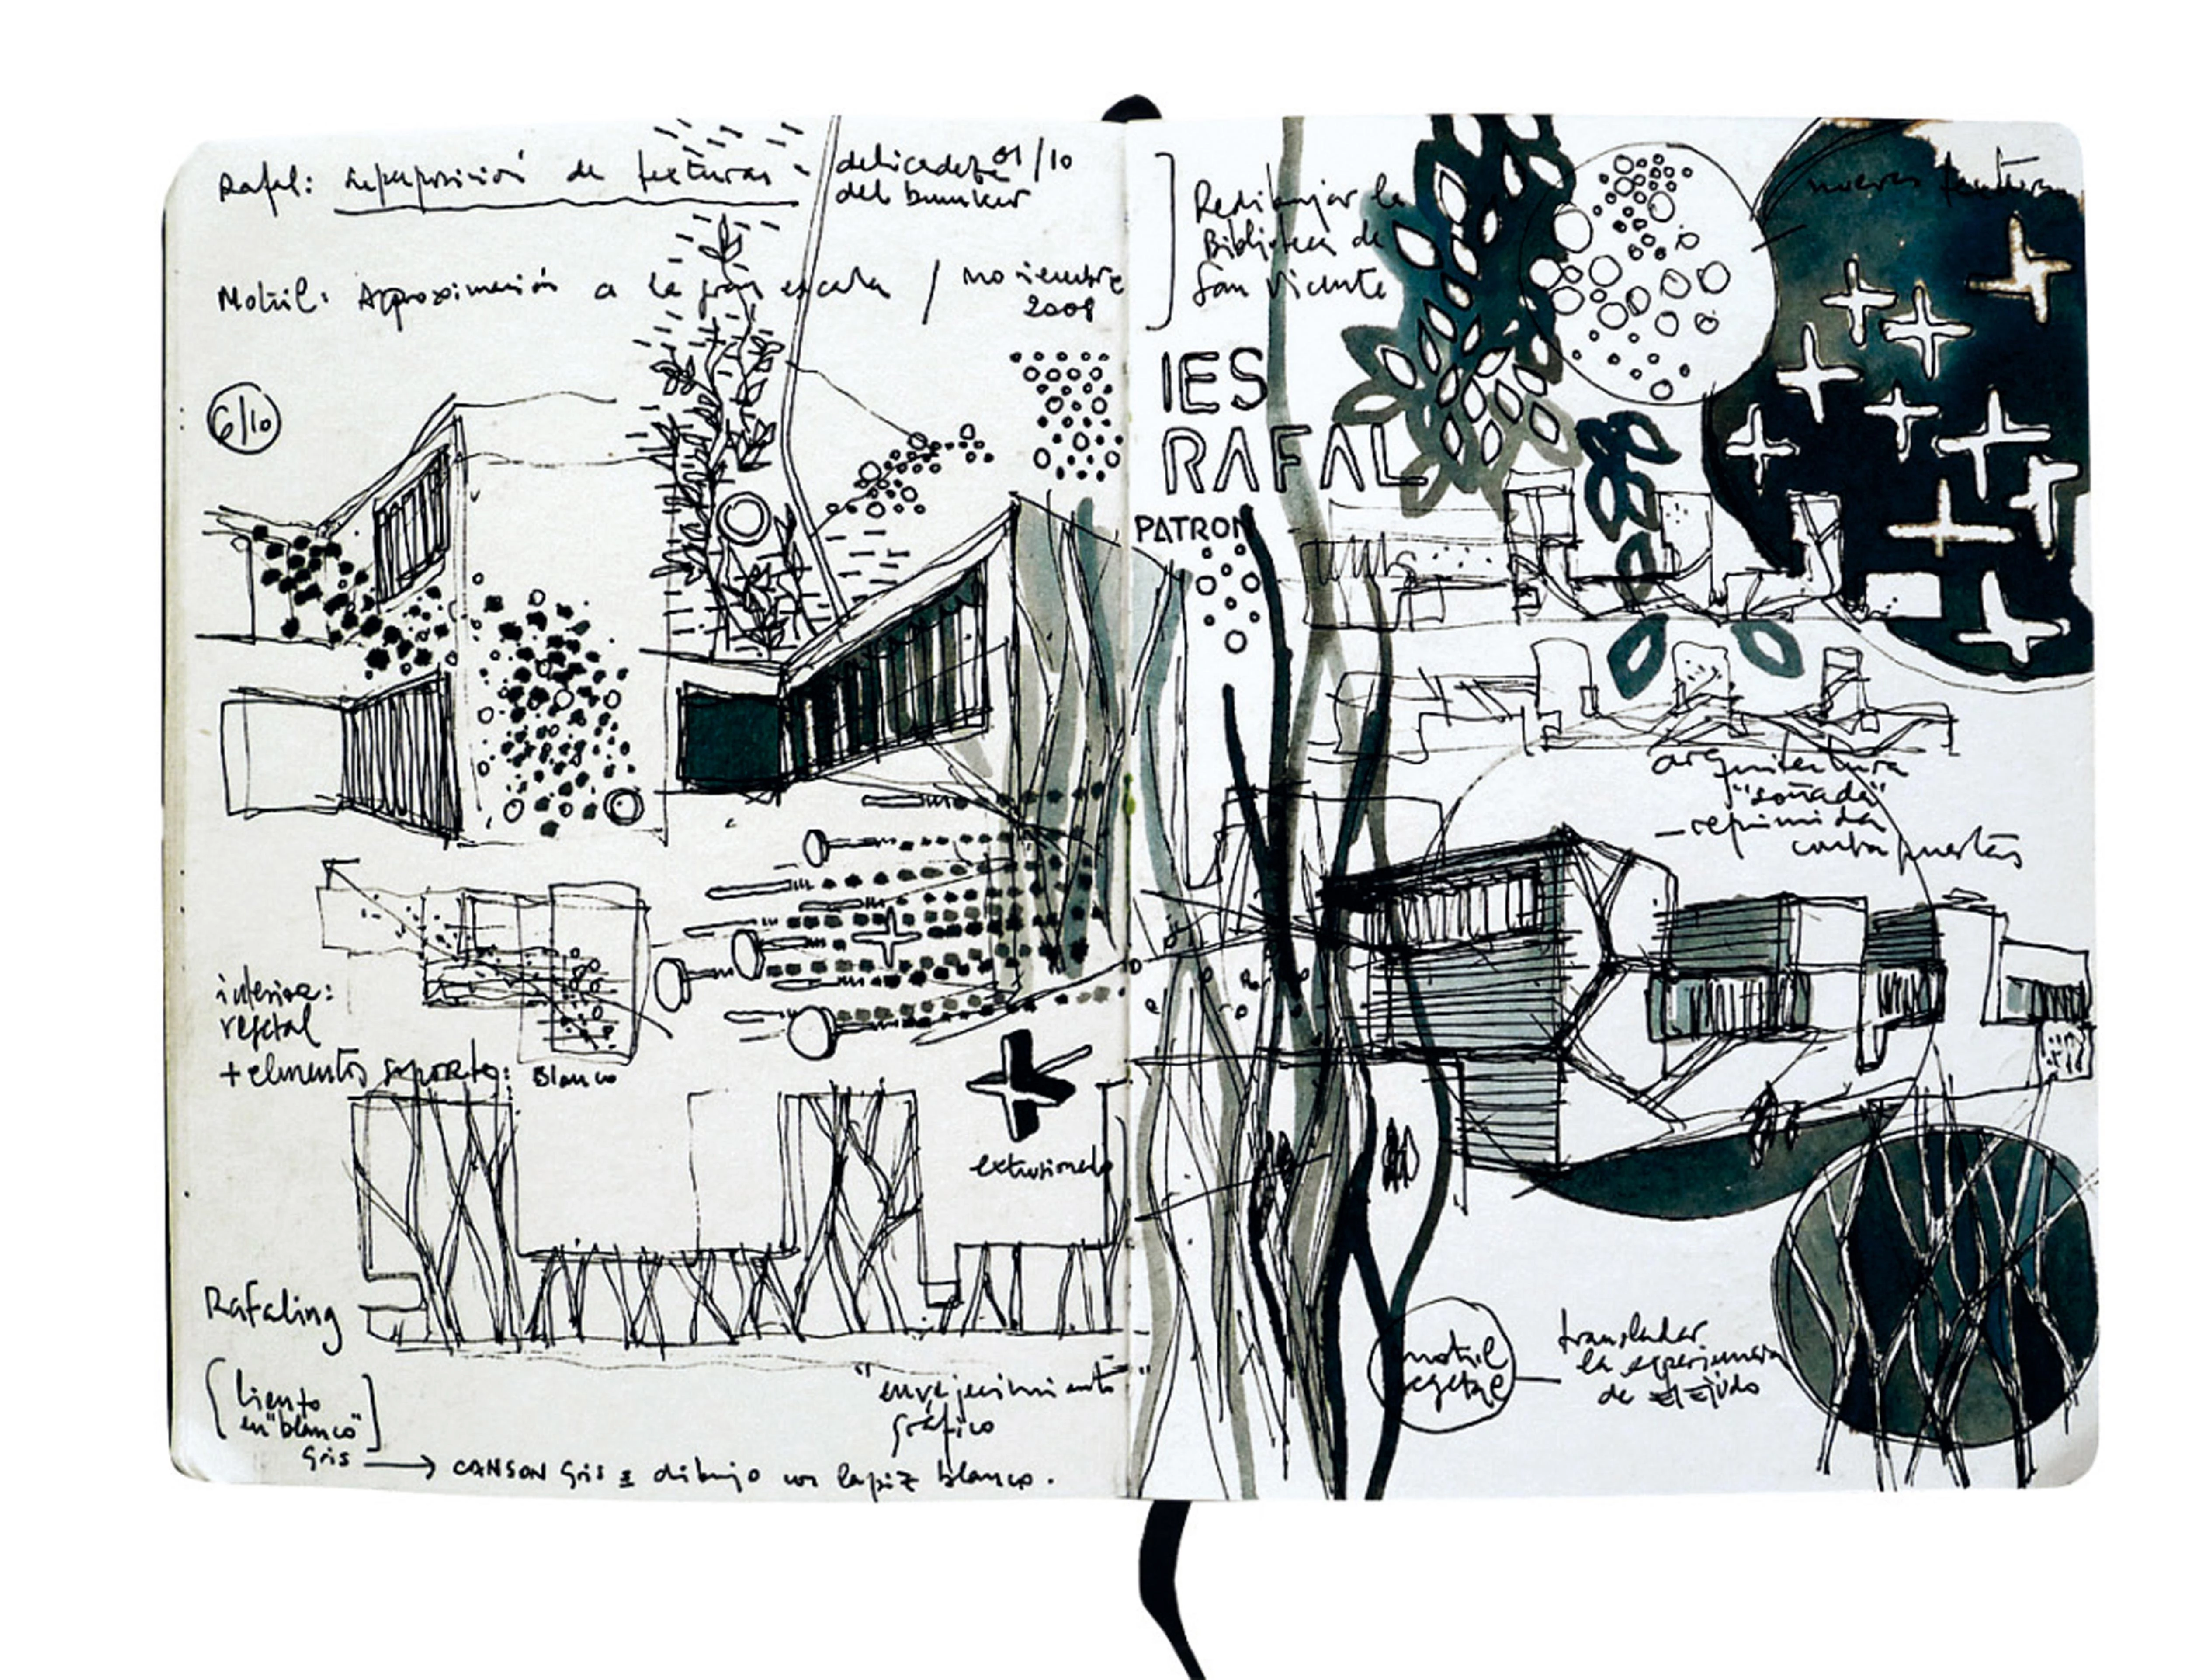 Rafal: superposición de texturas - delicadeza 01/10
del bunker
Motril: Aproximación a la gran escala / noviembre
2008
6/10
interior:
vegetal
+ elementos soporte:
Blanco
extrusionado
Rafaling
[lienzo
en "blanco"]
gris → CANSON gris = dibujo con lapiz blanco.
"envejecimiento"
gráfico
Redibujar la
Biblioteca de
San Vicente
nuevas texturas
IES
RAFAL
PATRON
arquitectura
"soñada"
- reprimida
contrapuestas
motril
vegetal
transladar
la experiencia
de El Ejido